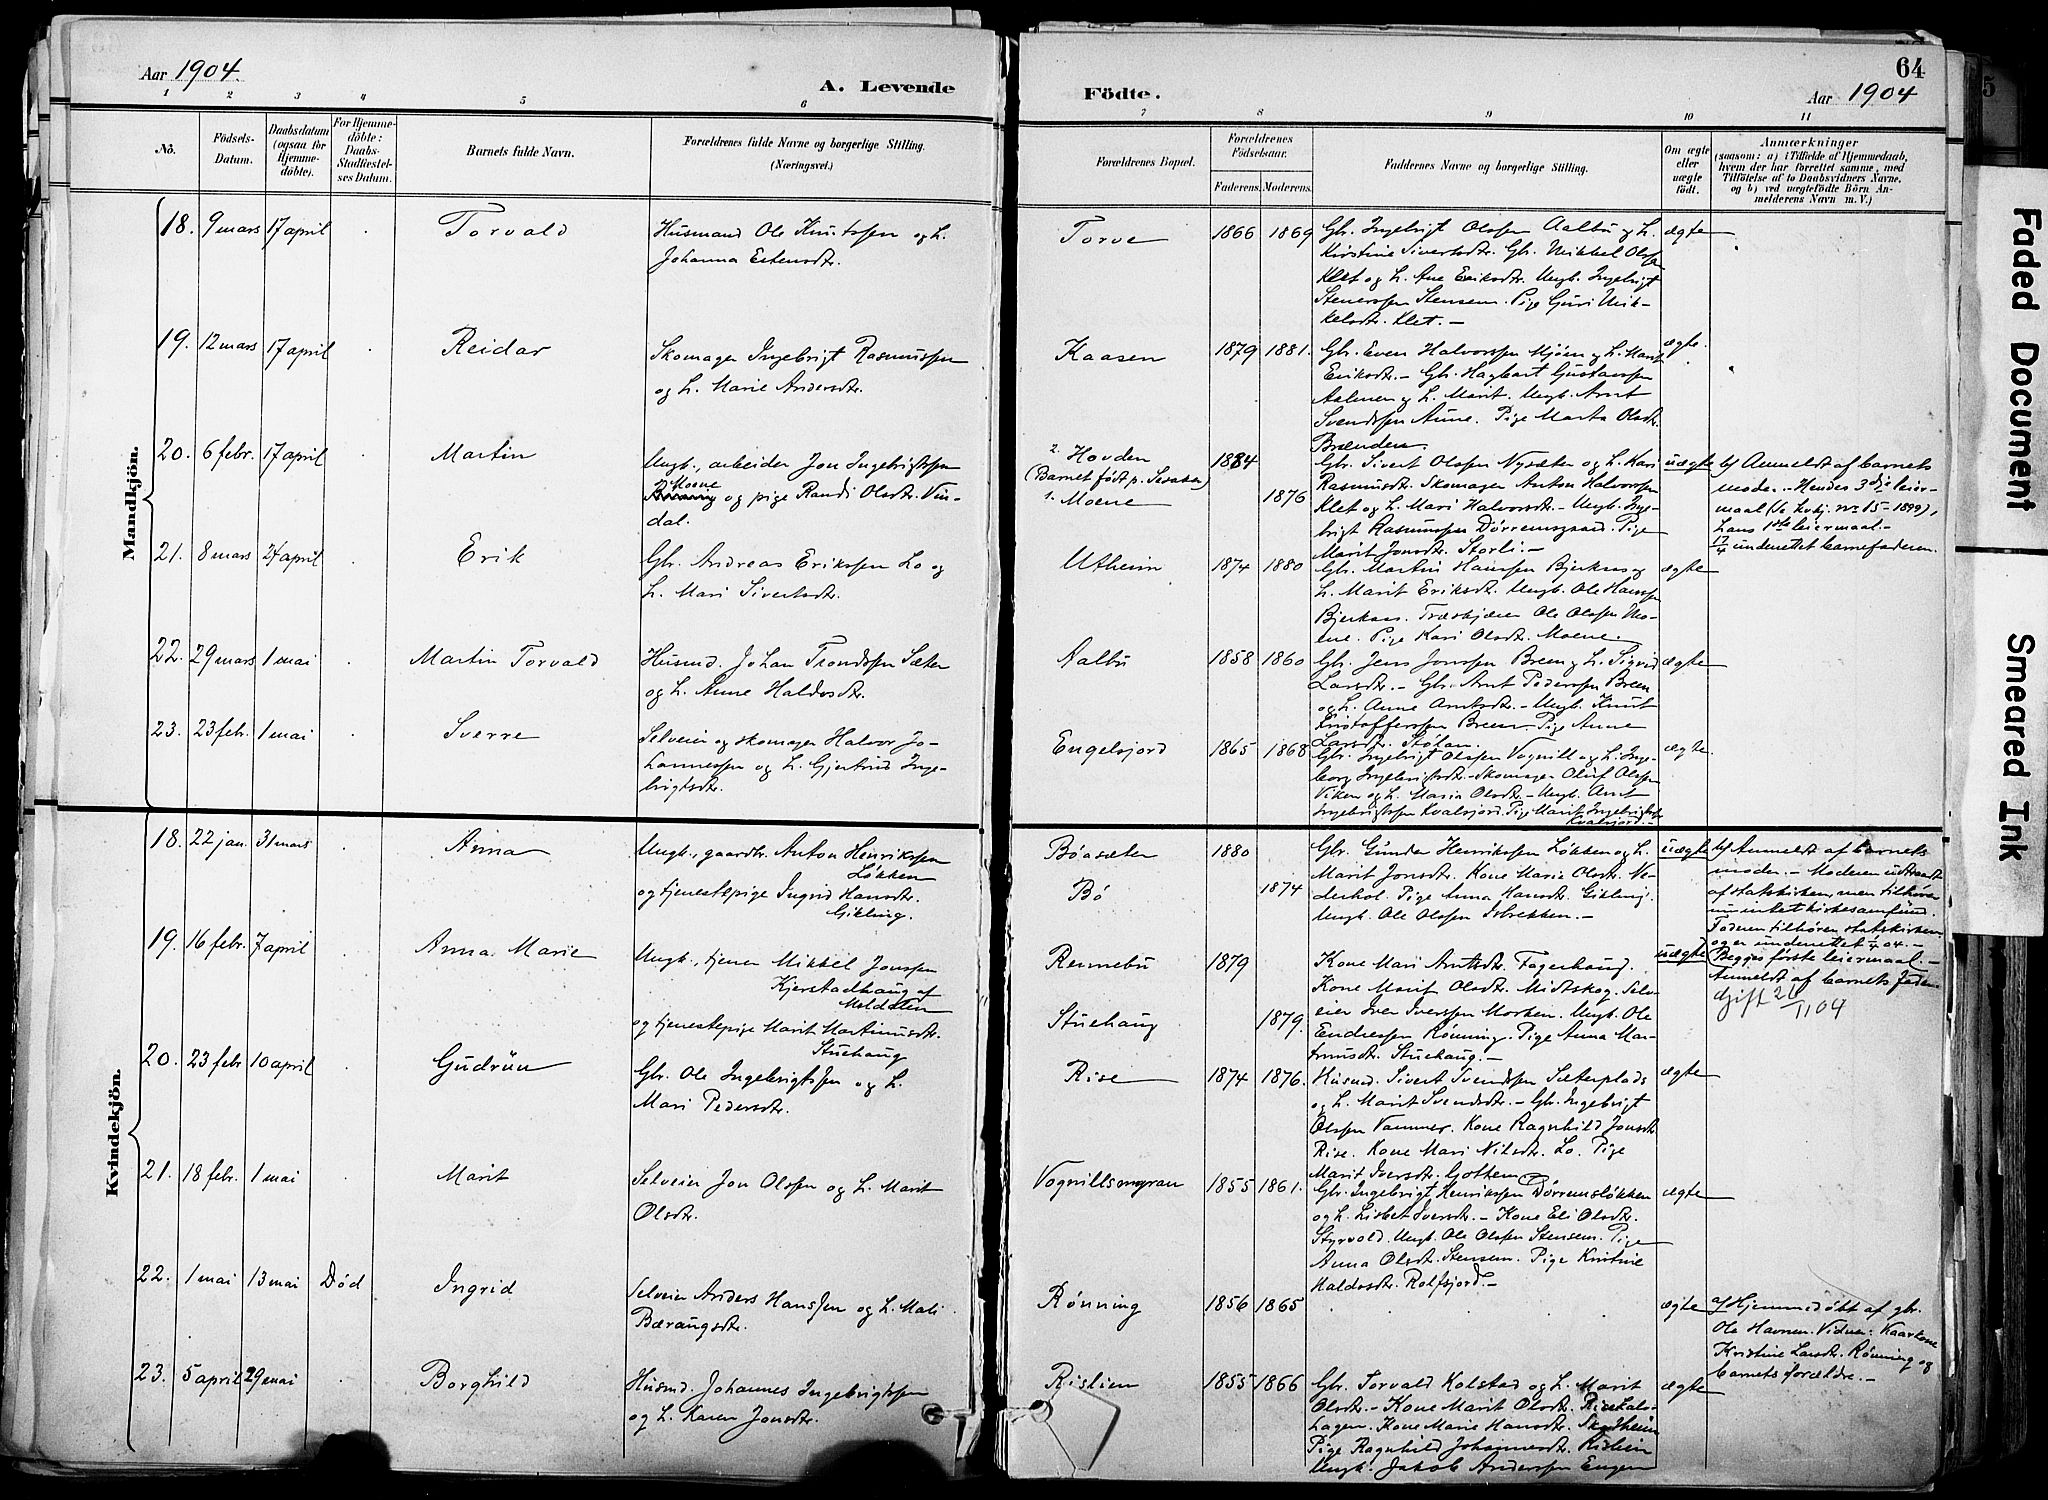 Aar 1904.
A. Levende
Födte.
64
Aar 1904
1 2 3 4 5 6 7 8 9 10 11
No.
Födsels-Datum.
Daabsdatum (ogsaa for Hjemme-döbte).
For Hjemme-döbte: Daabs-Stadfæstel-ses Datum.
Barnets fulde Navn.
Forældrenes fulde Navne og borgerlige Stilling.
(Næringsvei.)
Forældrenes Bopæl.
Forældrenes Födselsaar.
Faderens. Moderens.
Faddernes Navne og borgerlige Stilling.
Om ægte eller uægte födt.
Anmærkninger
(saasom: a) i Tilfælde af Hjemmedaab,
hvem der har forrettet samme, med
Tilföielse af to Daabsvidners Navne,
og b) ved uægtefödte Börn An-
melderens Navn m. V.)
Mandkjön.
18. 9 mars 17 april . Torvald
Husmand Ole Knutssen og h.
Johanna Estensdtr.
Torve 1866 1869
Gbr. Ingebrigt Olssen Aalbu og h.
Kirstine Sivertsdtr. Gbr. Mikkel Olssen
Klet og h. Ane Eriksdtr. Ungk. Ingebrigt
Stenerssen Stensem. Pige Guri Mik-
kelsdtr. Klet. –
ægte
19. 12 mars 17 april . Reidar
Skomager Ingebrigt Rasmussen
og h. Marie Andersdtr.
Kaasen 1879 1881.
Gbr. Even Halvorssen Mjøen og h. Marit
Eriksdtr. – Gbr. Hagbart Gustavssen
Aalmen og h. Marit. Ungk. Arnt
Svendssen Aune. Pige Marta Olsdtr.
Brænden.
ægte.
20. 6 febr. 17 april Martin
Ungk., arbeider Jon Ingebrigtssen
Moene
og pige Randi Olsdtr. Vin-
dal.
2. Hovden
(Barnet født p. )
1. Moene
1884
1876
Gbr. Sivert Olssen Nysæter og h. Kari
Rasmusdtr. Skomager Anton Halvorssen
Klet og h. Mari Halvorsdtr. – Ungk. Inge-
brigt Rasmussen Dørremsgaard. Pige
Marit Jonsdtr. Storli. –
uægte
b) Anmeldt af barnets
moder. – Hendes 3dje leier-
maal (se kvkj. nr 15 – 1899),
hans 1ste leiermaal. –
17/4 underrettet barnefaderen.
21. 8 mars 24 april Erik
Gbr. Andreas Erikssen Lo og
h. Mari Sivertsdtr.
Utheim 1874 1880
Gbr. Martin Hanssen Bjerkaas og
h. Marit Eriksdtr. Ungk. Ole Hanssen
Bjerkaas. Træskjærer Ole Olssen Mo-
ene. Pige Kari Olsdtr. Moene.
ægte
22. 29 mars 1 mai . Martin Torvald
Husmd. Johan Trondssen Sæter
og h. Anne Haldosdtr.
Aalbu 1858 1860
Gbr. Jens Jonssen Breen og h. Sigrid
Larsdtr. – Gbr. Arnt Pederssen Breen
og h. Anne Arntsdtr. – Ungk. Knut
Kristofferssen Breen. Pige Anne
Larsdtr. Stølan.
ægte
23. 23 febr. 1 mai . Sverre
Selveier og skomager Halvor Jo-
hannessen og h. Gjertrud Inge-
brigtsdtr.
Engelsjord 1865 1868
Gbr. Ingebrigt Olssen Vognill og h. Inge-
borg Ingebrigtsdtr. – Skomager Oluf Olssen
Viken og h. Maria Olsdtr. – Ungk. Arnt
Ingebrigtssen Kvalsjord. Pige Marit Ingebrigtsdtr.
Kvalsjord. –
ægte.
Kvindekjön.
18. 22 jan. 31 mars . Anna
Ungk., gaardbr. Anton Henrikssen
Løkken
og tjenestepige Ingrid Hansdtr.
Gikling.
Bøasæter
Bø
1880
1874
Gbr. Gunder Henrikssen Løkken og h.
Marit Jonsdtr. Kone Marie Olsdtr. Ve-
derhol. Pige Anna Hansdtr. Gikling.
Ungk. Ole Olssen Isbrekken. –
uægte
b) Anmeldt af barnets
moder. – Moderen udtraadt
af statskirken, men tilhører
nu intet kirkesamfund.
Faderen tilhører statskirken
og er underrettet 1/4 04. –
Begges første leiermaal. –
19. 16 febr. 7 april . Anna Marie
Ungk., tjener Mikkel Jonssen
Kjerstadhaug af
Meldalen
og tjenestepige Marit Martinusdtr.
Stuehaug
Rennebu
Stuehaug
1879
1879.
Kone Mari Arntsdtr. Fagerhaug.
Kone Marit Olsdtr. Midtskog. Selv-
eier Iver Iverssen Morken. Ungk. Ole
Endressen Rønning. Pige Anna Mar-
tinusdtr. Stuehaug. –
uægte
Anmeldt af barnets fader.
Gift 21/11 04
20. 23 febr 10 april . Gudrun
Gbr. Ole Ingebrigtssen og h.
Mari Pedersdtr.
Rise 1874 1876.
Husmd. Sivert Svendssen Sæterplads
og h. Marit Svendsdtr. – Gbr. Ingebrigt
Olssen Vammer. Kone Ragnhild Jonsdtr.
Rise. Kone Mari Nilsdtr. Lo. Pige
Marit Iversdtr. Gottem
ægte
21. 18 febr. 1 mai . Marit
Selveier Jon Olssen og h. Marit
Olsdtr.
Vognillsmyran 1855 1861.
Gbr. Ingebrigt Henrikssen Dørremsløkken
og h. Lisbet Iversdtr. – Kone Eli Olsdtr.
Styrvold. Ungk. Ole Olssen Stensem. Pige
Anna Olsdtr. Stensem. Pige Kristine
Haldosdtr. Rolfsjord. –
ægte
22. 1 mai 13 mai Død Ingrid
Selveier Anders Hanssen og h. Mali
Bæraugsdtr.
Rønning 1856 1865 .
ægte
a) Hjemmedøbt af gbr.
Ole Havnen. Vidner:
Kristine Larsdtr. Rønning og
barnets forældre. –
23. 5 april 29 mai . Borghild
Husmd. Johannes Ingebrigtssen
og h. Karen Jonsdtr.
Rislien 1855 1866
Gbr. Torvald Kolstad og h. Marit
Olsdtr. – Kone Marit Olsdtr.
hagen. Kone Marie Hansdtr.
Pige Ragnhild Johannesdtr. Rislien
Ungk. Jakob Anderssen Engen
ægte
Faded Document
Smeared Ink